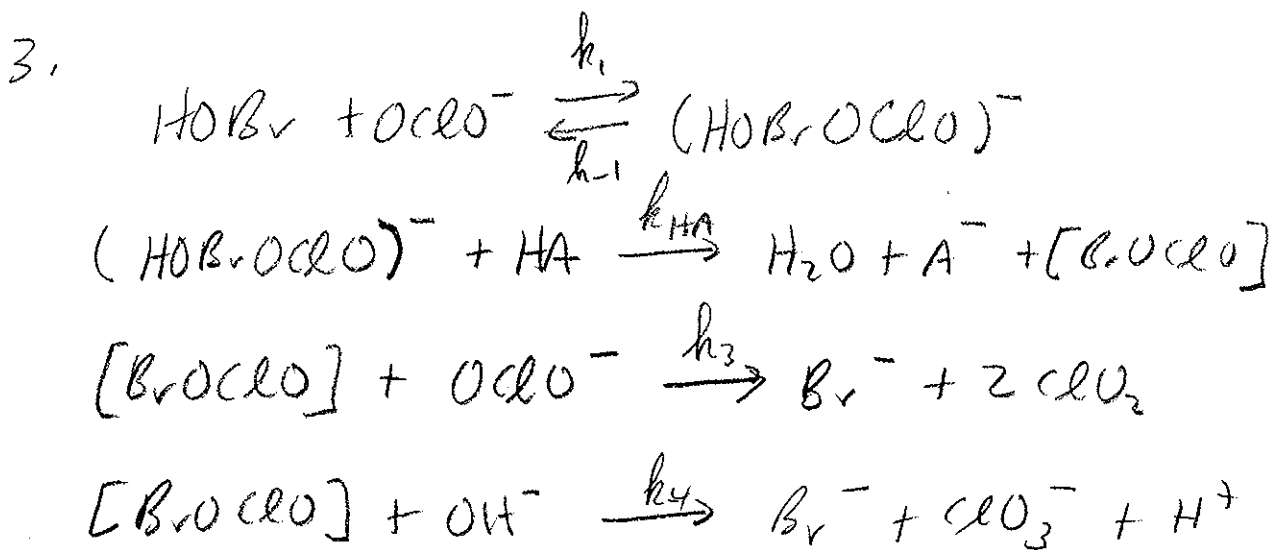 3.
k₁
HOBr + OClO⁻ ⇌ (HOBrOClO)⁻
k₋₁
(HOBrOClO)⁻ + HA →(k_HA) H₂O + A⁻ + [BrOClO]
[BrOClO] + OClO⁻ →(k₃) Br⁻ + 2 ClO₂
[BrOClO] + OH⁻ →(k₄) Br⁻ + ClO₃⁻ + H⁺